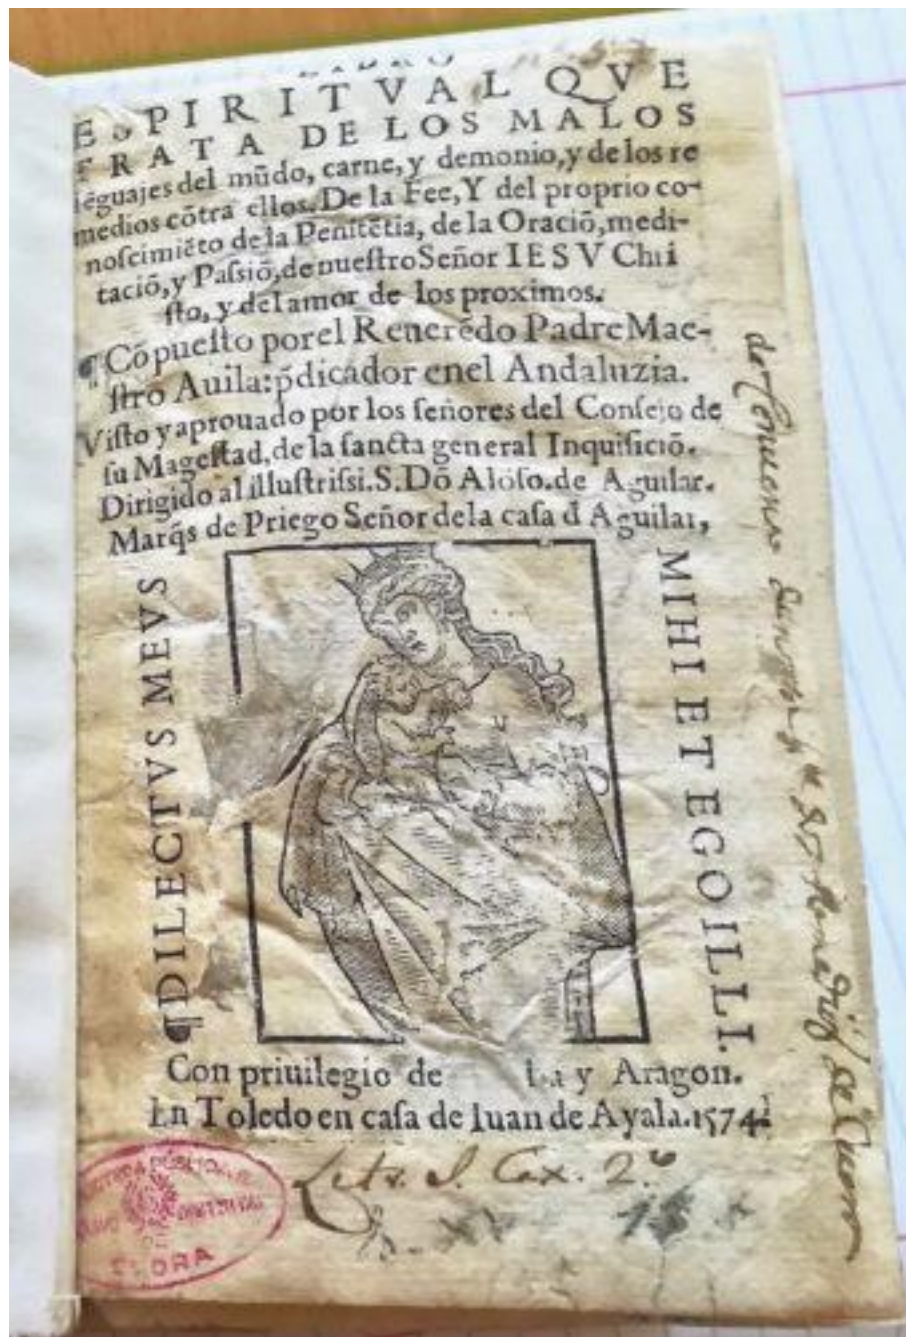 LIBRO
ESPIRITVAL QVE
TRATA DE LOS MALOS
lẽguajes del mũdo, carne, y demonio, y de los re
medios cõtra ellos. De la Fee, Y del proprio co-
noſcimiẽto de la Penitẽtia, de la Oraciõ, medi-
taciõ, y Paſsiõ, de nueſtro Señor IESV Chri
ſto, y del amor de los proximos.
¶ Cõpueſto por el Reuerẽdo Padre Mae-
ſtro Auila: p̃dicador enel Andaluzia.
Viſto y aprouado por los ſeñores del Conſejo de
ſu Mageſtad, de la ſancta general Inquiſiciõ.
Dirigido al illuſtriſsi. S. Dõ Alõſo. de Aguilar.
Marq̃s de Priego Señor dela caſa d̃ Aguilar,
¶DILECTVS MEVS
MIHI ET EGO ILLI.
Con priuilegio de y Aragon.
En Toledo en caſa de Iuan de Ayala. 1574.
Letr. S. Cax. 2.º
15